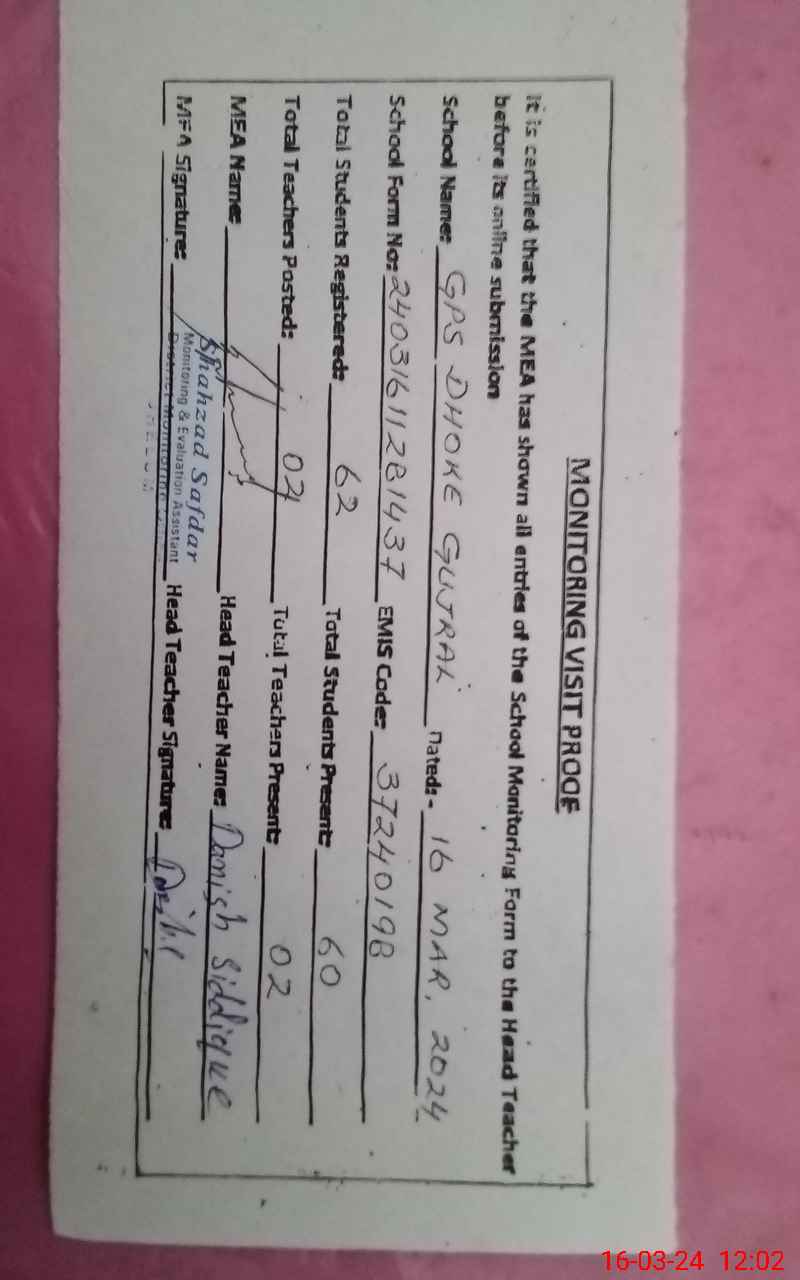 MONITORING VISIT PROOF
It is certified that the MEA has shown all entries of the School Monitoring Form to the Head Teacher
before its online submission
School Name: GPS DHOKE GUJRAL Dated:- 16 MAR, 2024
School Form No: 24031611281437 EMIS Code: 37240198
Total Students Registered: 62 Total Students Present: 60
Total Teachers Posted: 02 Total Teachers Present: 02
MEA Name: Head Teacher Name: Danish Siddique
Shahzad Safdar
Monitoring & Evaluation Assistant
District Monitoring
MEA Signature: Head Teacher Signature:
16-03-24 12:02